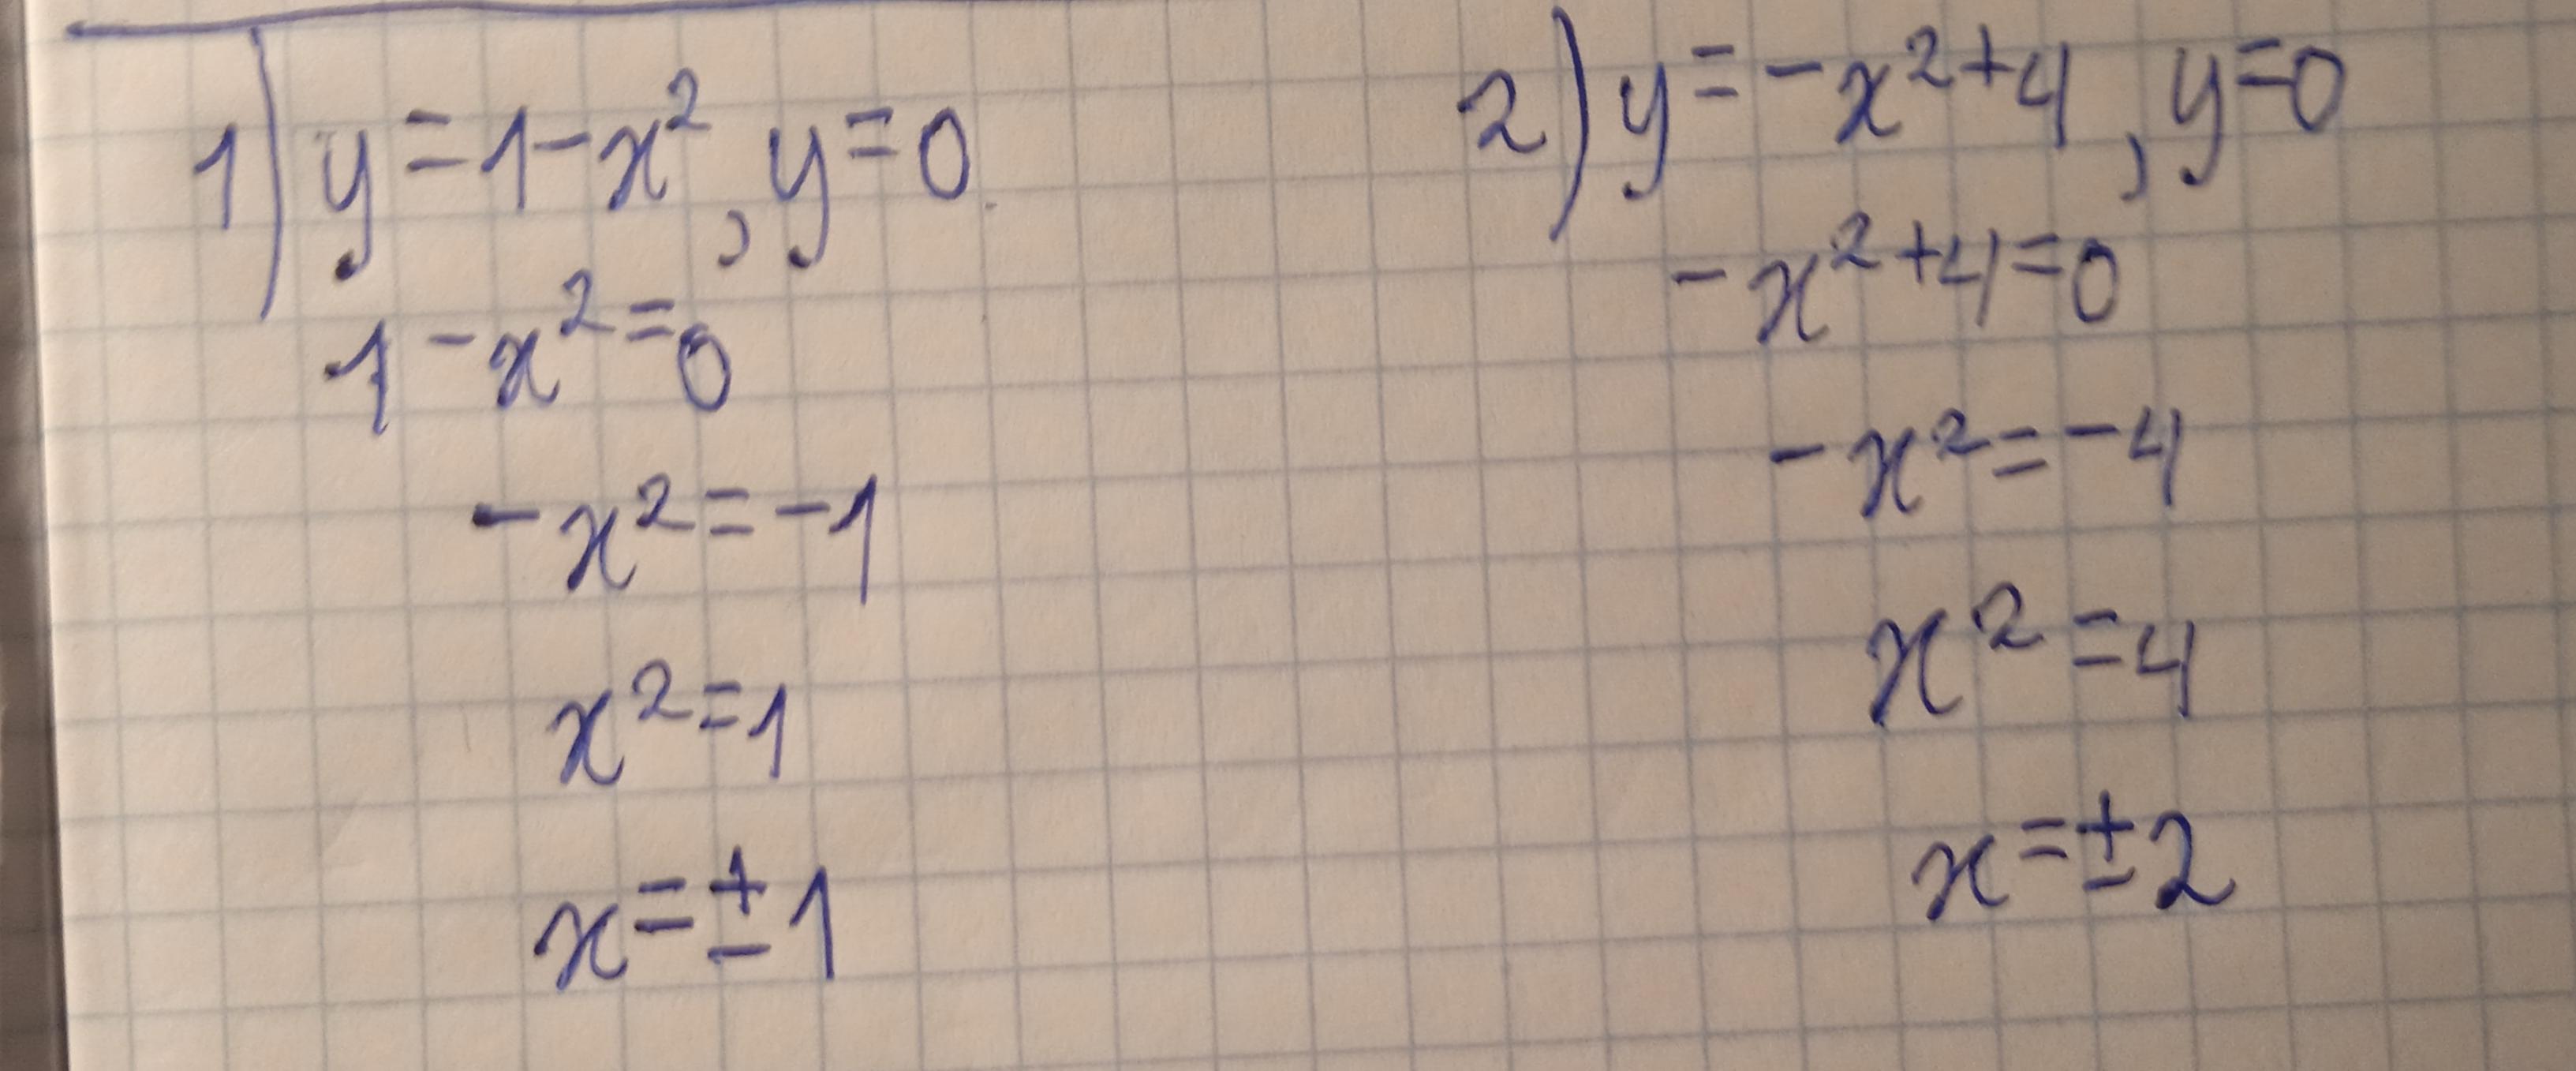 1) y=1-x², y=0
1-x²=0
-x²=-1
x²=1
x=±1
2) y=-x²+4, y=0
-x²+4=0
-x²=-4
x²=4
x=±2